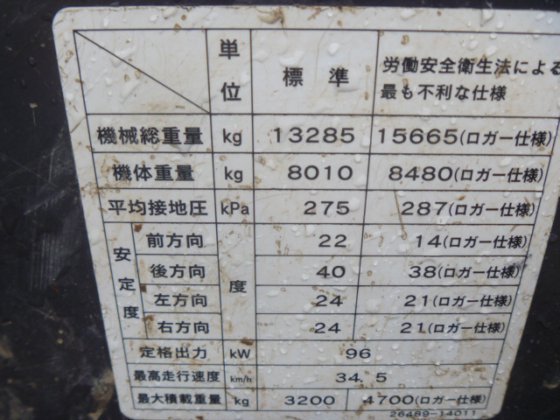 単位 標準 労働安全衛生法による
最も不利な仕様
機械総重量 kg 13285 15665(ロガー仕様)
機体重量 kg 8010 8480(ロガー仕様)
平均接地圧 kPa 275 287(ロガー仕様)
安定度 前方向 度 22 14(ロガー仕様)
後方向 40 38(ロガー仕様)
左方向 24 21(ロガー仕様)
右方向 24 21(ロガー仕様)
定格出力 kW 96
最高走行速度 km/h 34.5
最大積載重量 kg 3200 4700(ロガー仕様)
26489-14011